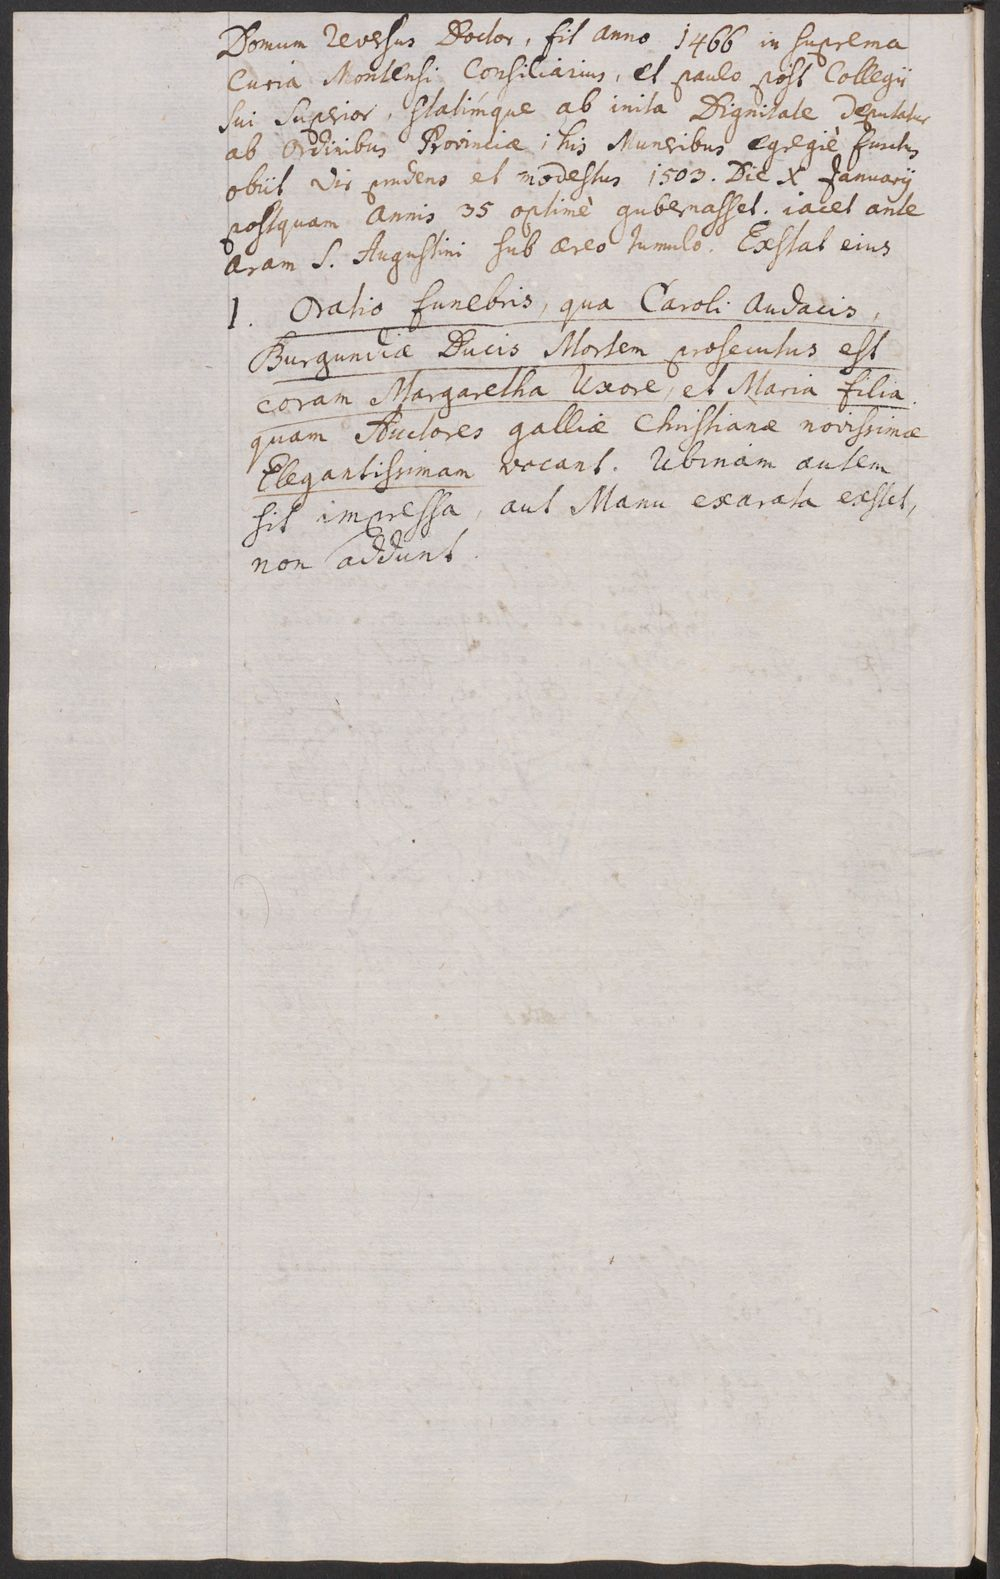 Domum reversus Doctor, fit anno 1466 in suprema
Curia Montensi Consiliarius, et paulo post Collegii
sui Superior, statimque ab inita Dignitate deputatur
ab ordinibus Provinciæ; his Muneribus egregiè functus
obiit vir prudens et modestus 1503. Die X January
postquam annis 35 optimè gubernasset. iacet ante
aram S. Augustini sub æreo tumulo. Exstat eius
1. Oratio funebris, qua Caroli audacis,
Burgundiæ Ducis Mortem prosecutus est
coram Margaretha Uxore, et Maria filia.
quam Auctores galliæ Christianæ novissimæ
Elegantissimam vocant. Ubinam autem
sit impressa, aut Manu exarata exstet,
non addunt.